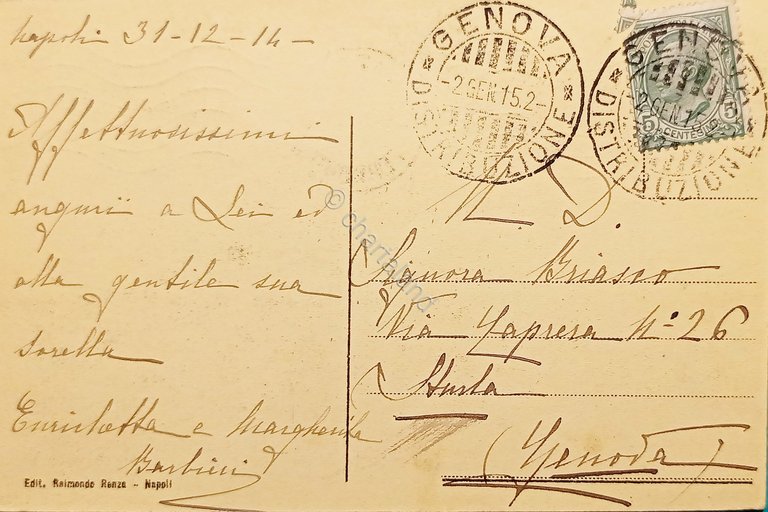 Napoli 31-12-14-
Affettuosissimi
augurii a Lei ed
alla gentile sua
sorella
Enrichetta e Margherita
Barbieri
Edit. Raimondo Renza - Napoli
GENOVA
-2 GEN 15.2-
DISTRIBUZIONE
GENOVA
2 GEN 15
DISTRIBUZIONE
15
CENTESIMI
N. D.
Signora Briasco
Via Caprera N° 26
Sturla
(Genova)
© chartaland